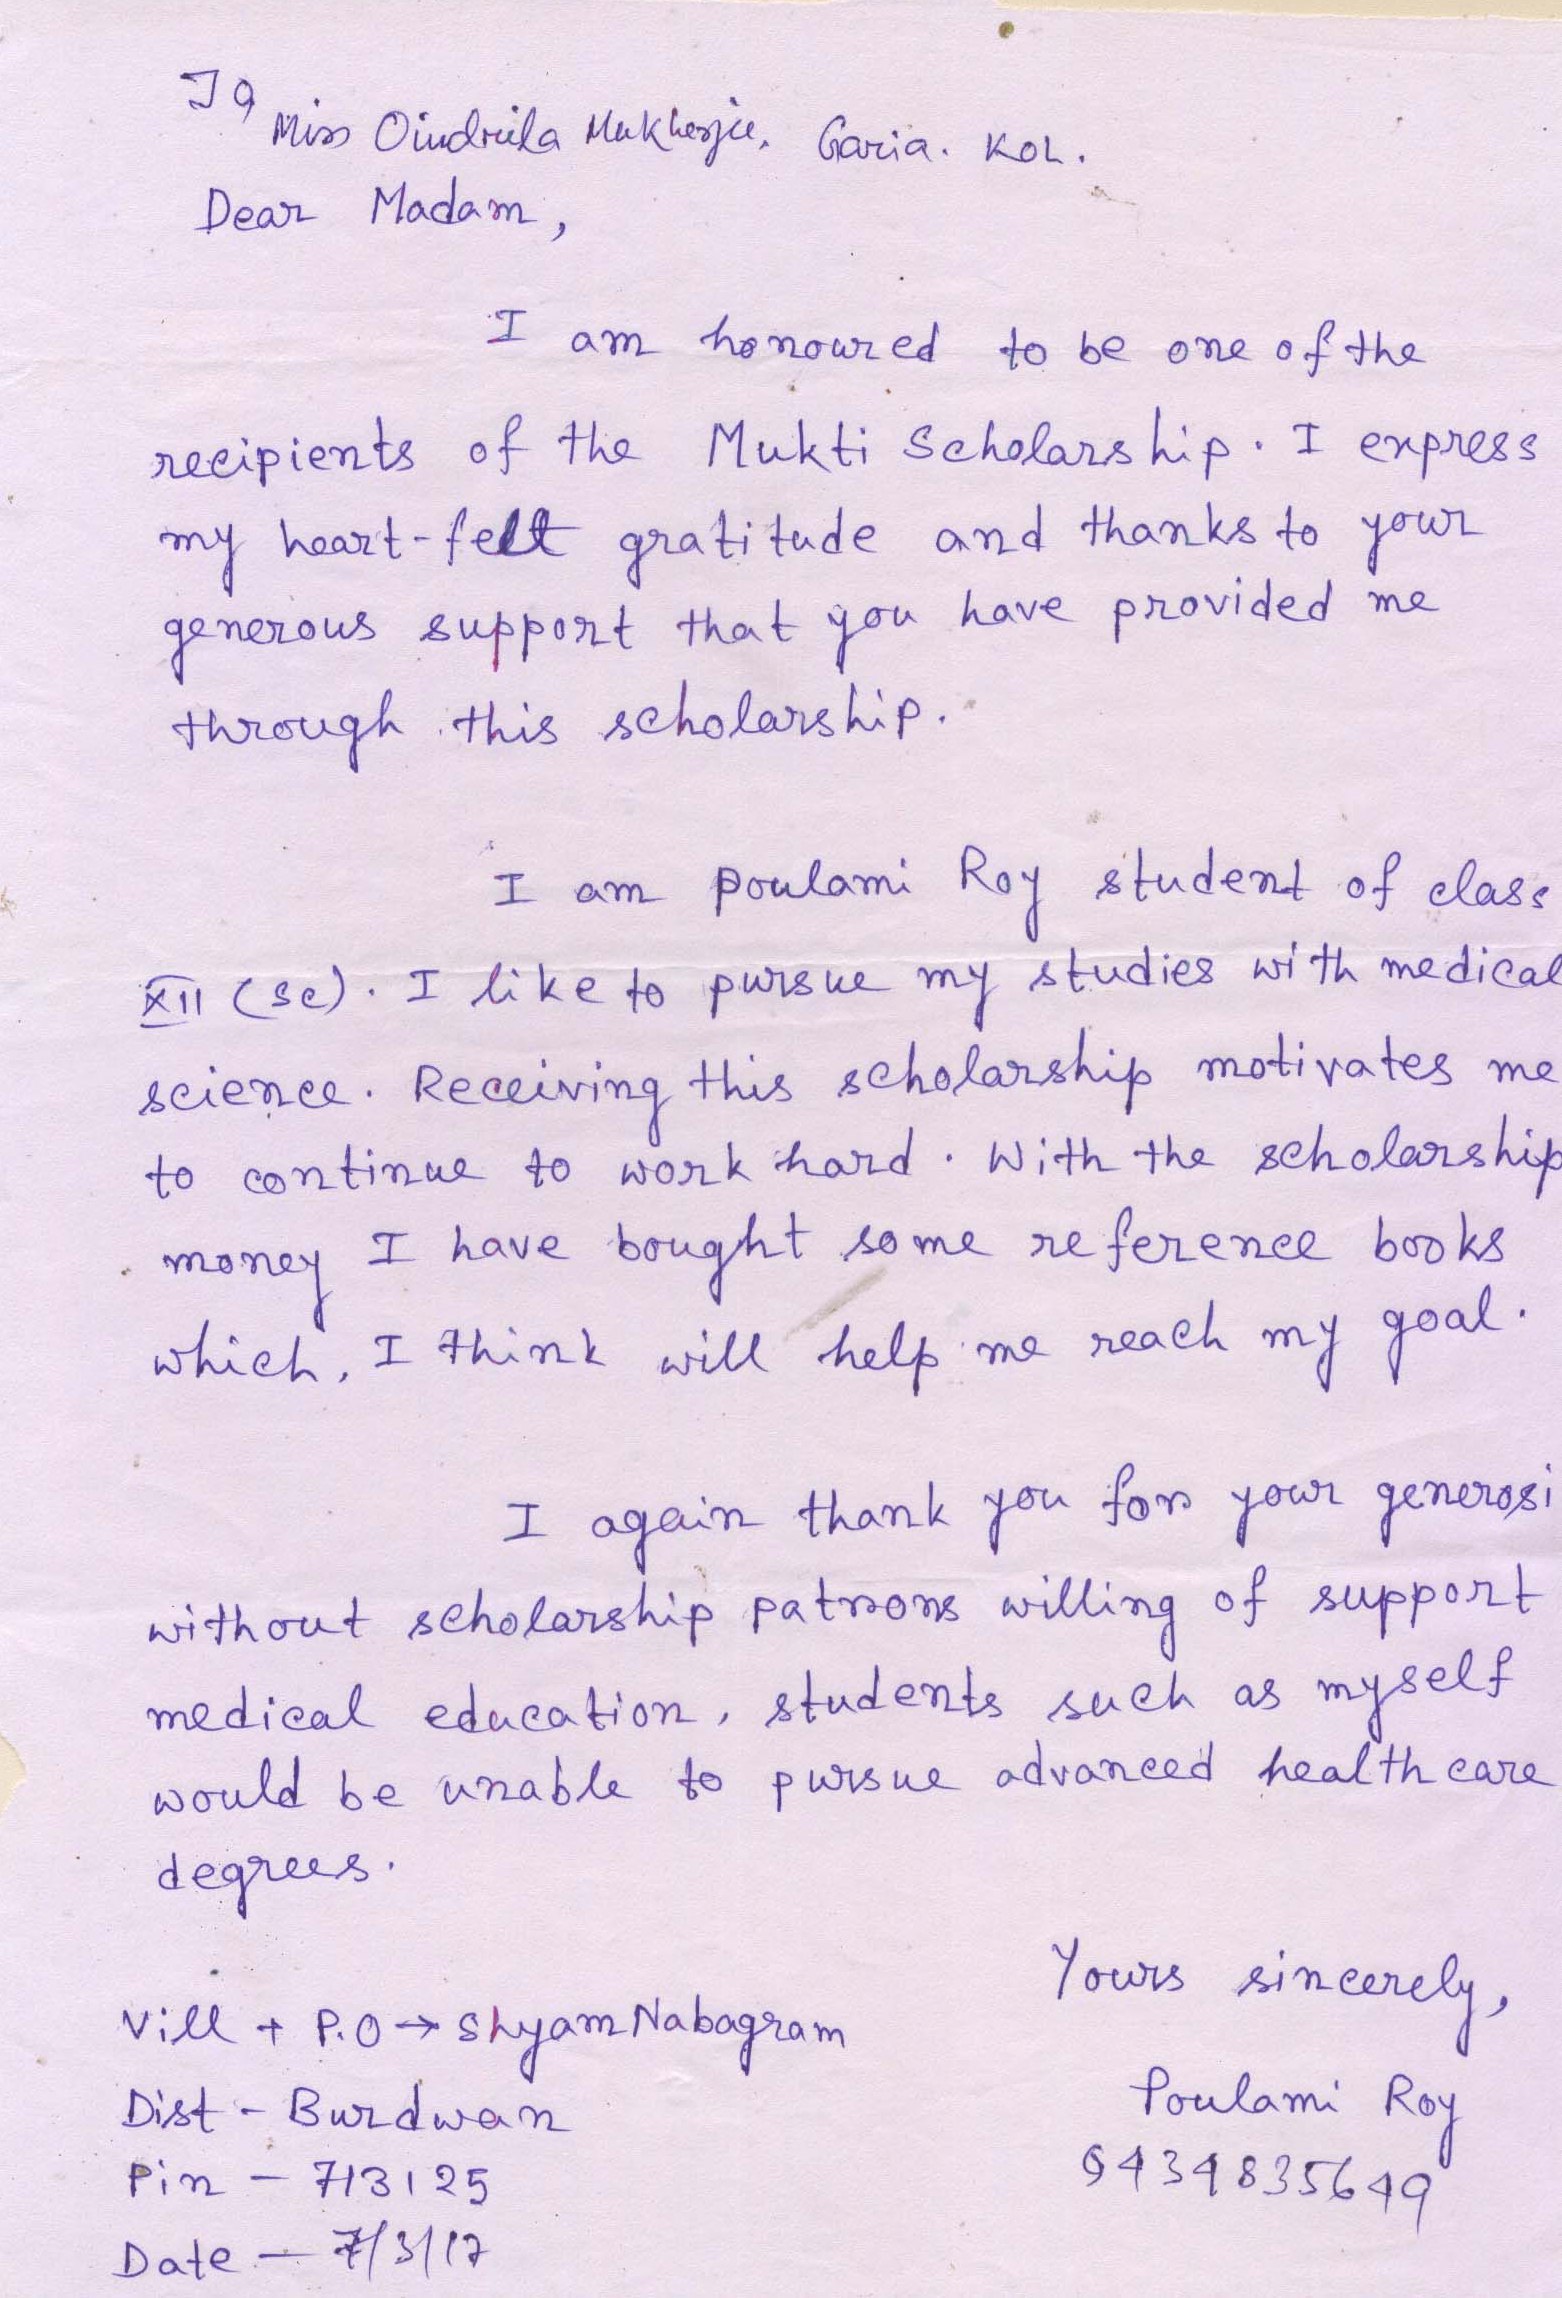 To
Miss Oindrila Mukherjee, Garia. KOL.
Dear Madam,
I am honoured to be one of the
recipients of the Mukti Scholarship. I express
my heart-felt gratitude and thanks to your
generous support that you have provided me
through this scholarship.
I am Poulami Roy student of class
XII (sc). I like to pursue my studies with medical
science. Receiving this scholarship motivates me
to continue to work hard. With the scholarship
money I have bought some reference books
which, I think will help me reach my goal.
I again thank you for your generosi
without scholarship patrons willing of support
medical education, students such as myself
would be unable to pursue advanced healthcare
degrees.
Yours sincerely,
Poulami Roy
9434835649
Vill + P.O → Shyam Nabagram
Dist - Burdwan
Pin - 713125
Date - 7/3/17